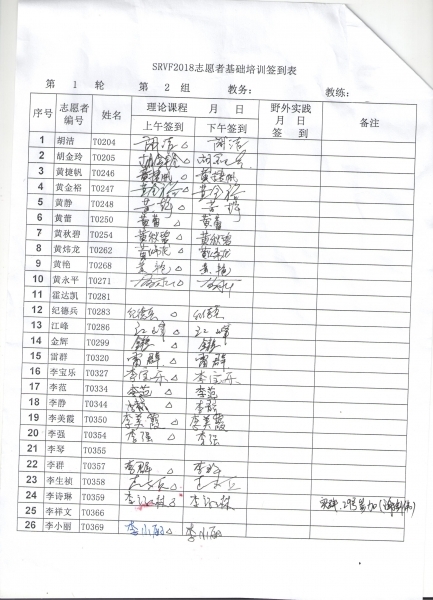 SRVF2018志愿者基础培训签到表
第 1 轮 第 2 组 教务: 教练:
序号 志愿者编号 姓名 理论课程 月 日 野外实践 月 日 签 到 备注
上午签到 下午签到
1 胡洁 T0204 胡洁 △ 胡洁
2 胡金玲 T0205 胡金玲 △
3 黄捷帆 T0246 黄捷帆 △ 黄捷帆
4 黄金裕 T0247 黄金裕 △ 黄金裕
5 黄静 T0248 黄静 △ 黄静
6 黄蕾 T0250 黄蕾 △ 黄蕾
7 黄秋碧 T0254 黄秋碧 △ 黄秋碧
8 黄炜龙 T0262 黄炜龙 △ 黄炜龙
9 黄艳 T0268 黄艳 △ 黄艳
10 黄永平 T0271 △
11 霍达凯 T0281
12 纪德兵 T0283 纪德兵 △ 纪德兵
13 江峰 T0286 江峰 △ 江峰
14 金辉 T0299 金辉 △ 金辉
15 雷群 T0320 雷群 △ 雷群
16 李宝乐 T0327 李宝乐 △ 李宝乐
17 李范 T0334 李范 △ 李范
18 李静 T0344 李静 △ 李静
19 李美霞 T0350 李美霞 △ 李美霞
20 李强 T0354 李强 △ 李强
21 李琴 T0355
22 李群 T0357 李群 △ 李群
23 李生桢 T0358 △
24 李诗琳 T0359 李诗琳 李诗琳
25 李祥文 T0366
26 李小丽 T0369 李小丽 △ 李小丽